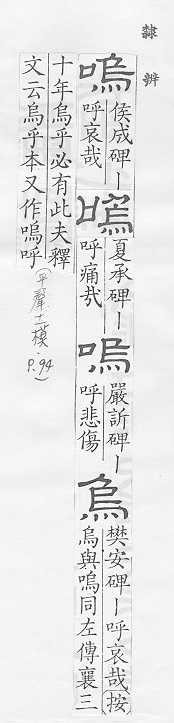 隸辨
嗚
侯成碑〡
呼哀哉
嗚
夏承碑〡
呼痛㢤
嗚
嚴訢碑〡
呼悲傷
烏
樊安碑〡呼哀哉(按)
烏與嗚同左傳襄三
十年烏乎必有此夫釋
文云烏乎本又作嗚呼
(平聲十一模. P.94)